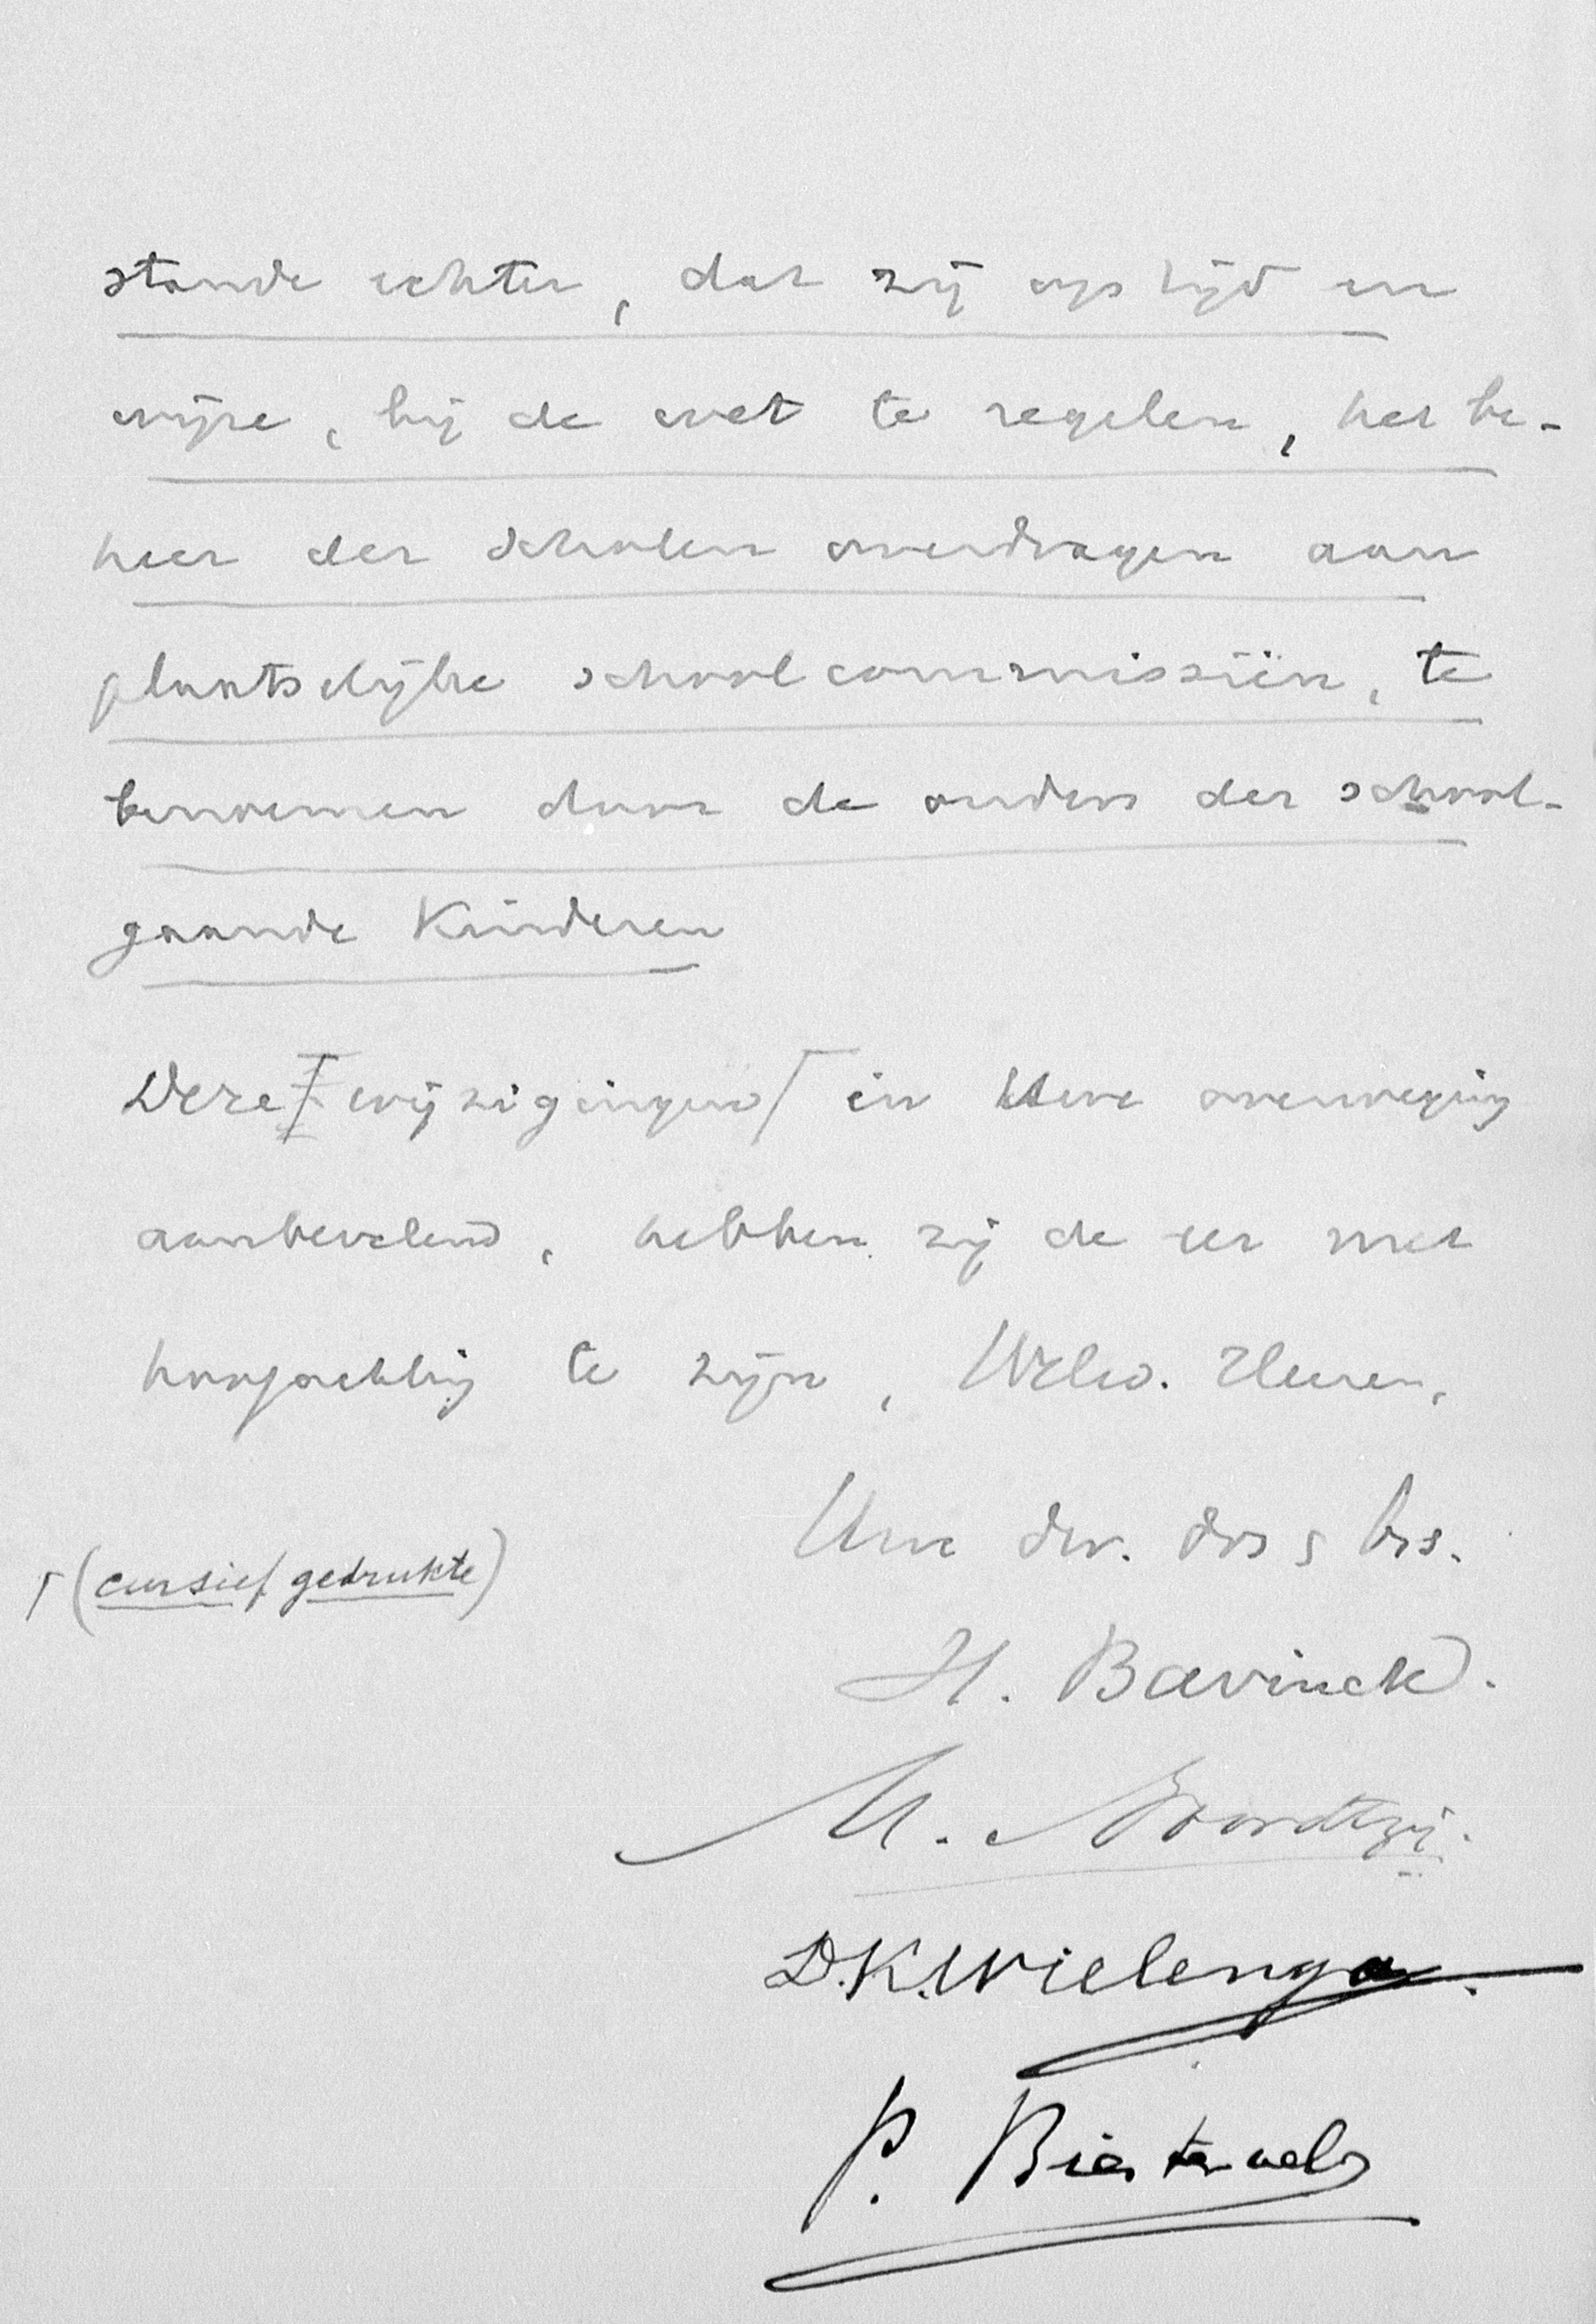 stande echter, dat zij op tijd en
wijze, bij de wet te regelen, het be-
heer der scholen overdragen aan
plaatselijke schoolcommissiën, te
benoemen door de ouders der school-
gaande Kinderen
Deze wijzigingen in Uwe overweging
aanbevelend, hebben zij de eer met
hoogachting te zijn, WelEw. Heeren,
Uwe dw. drs & brs.
(cursief gedrukte)
H. Bavinck.
M. Noordtzij.
D.K. Wielenga.
P. Biesterveld